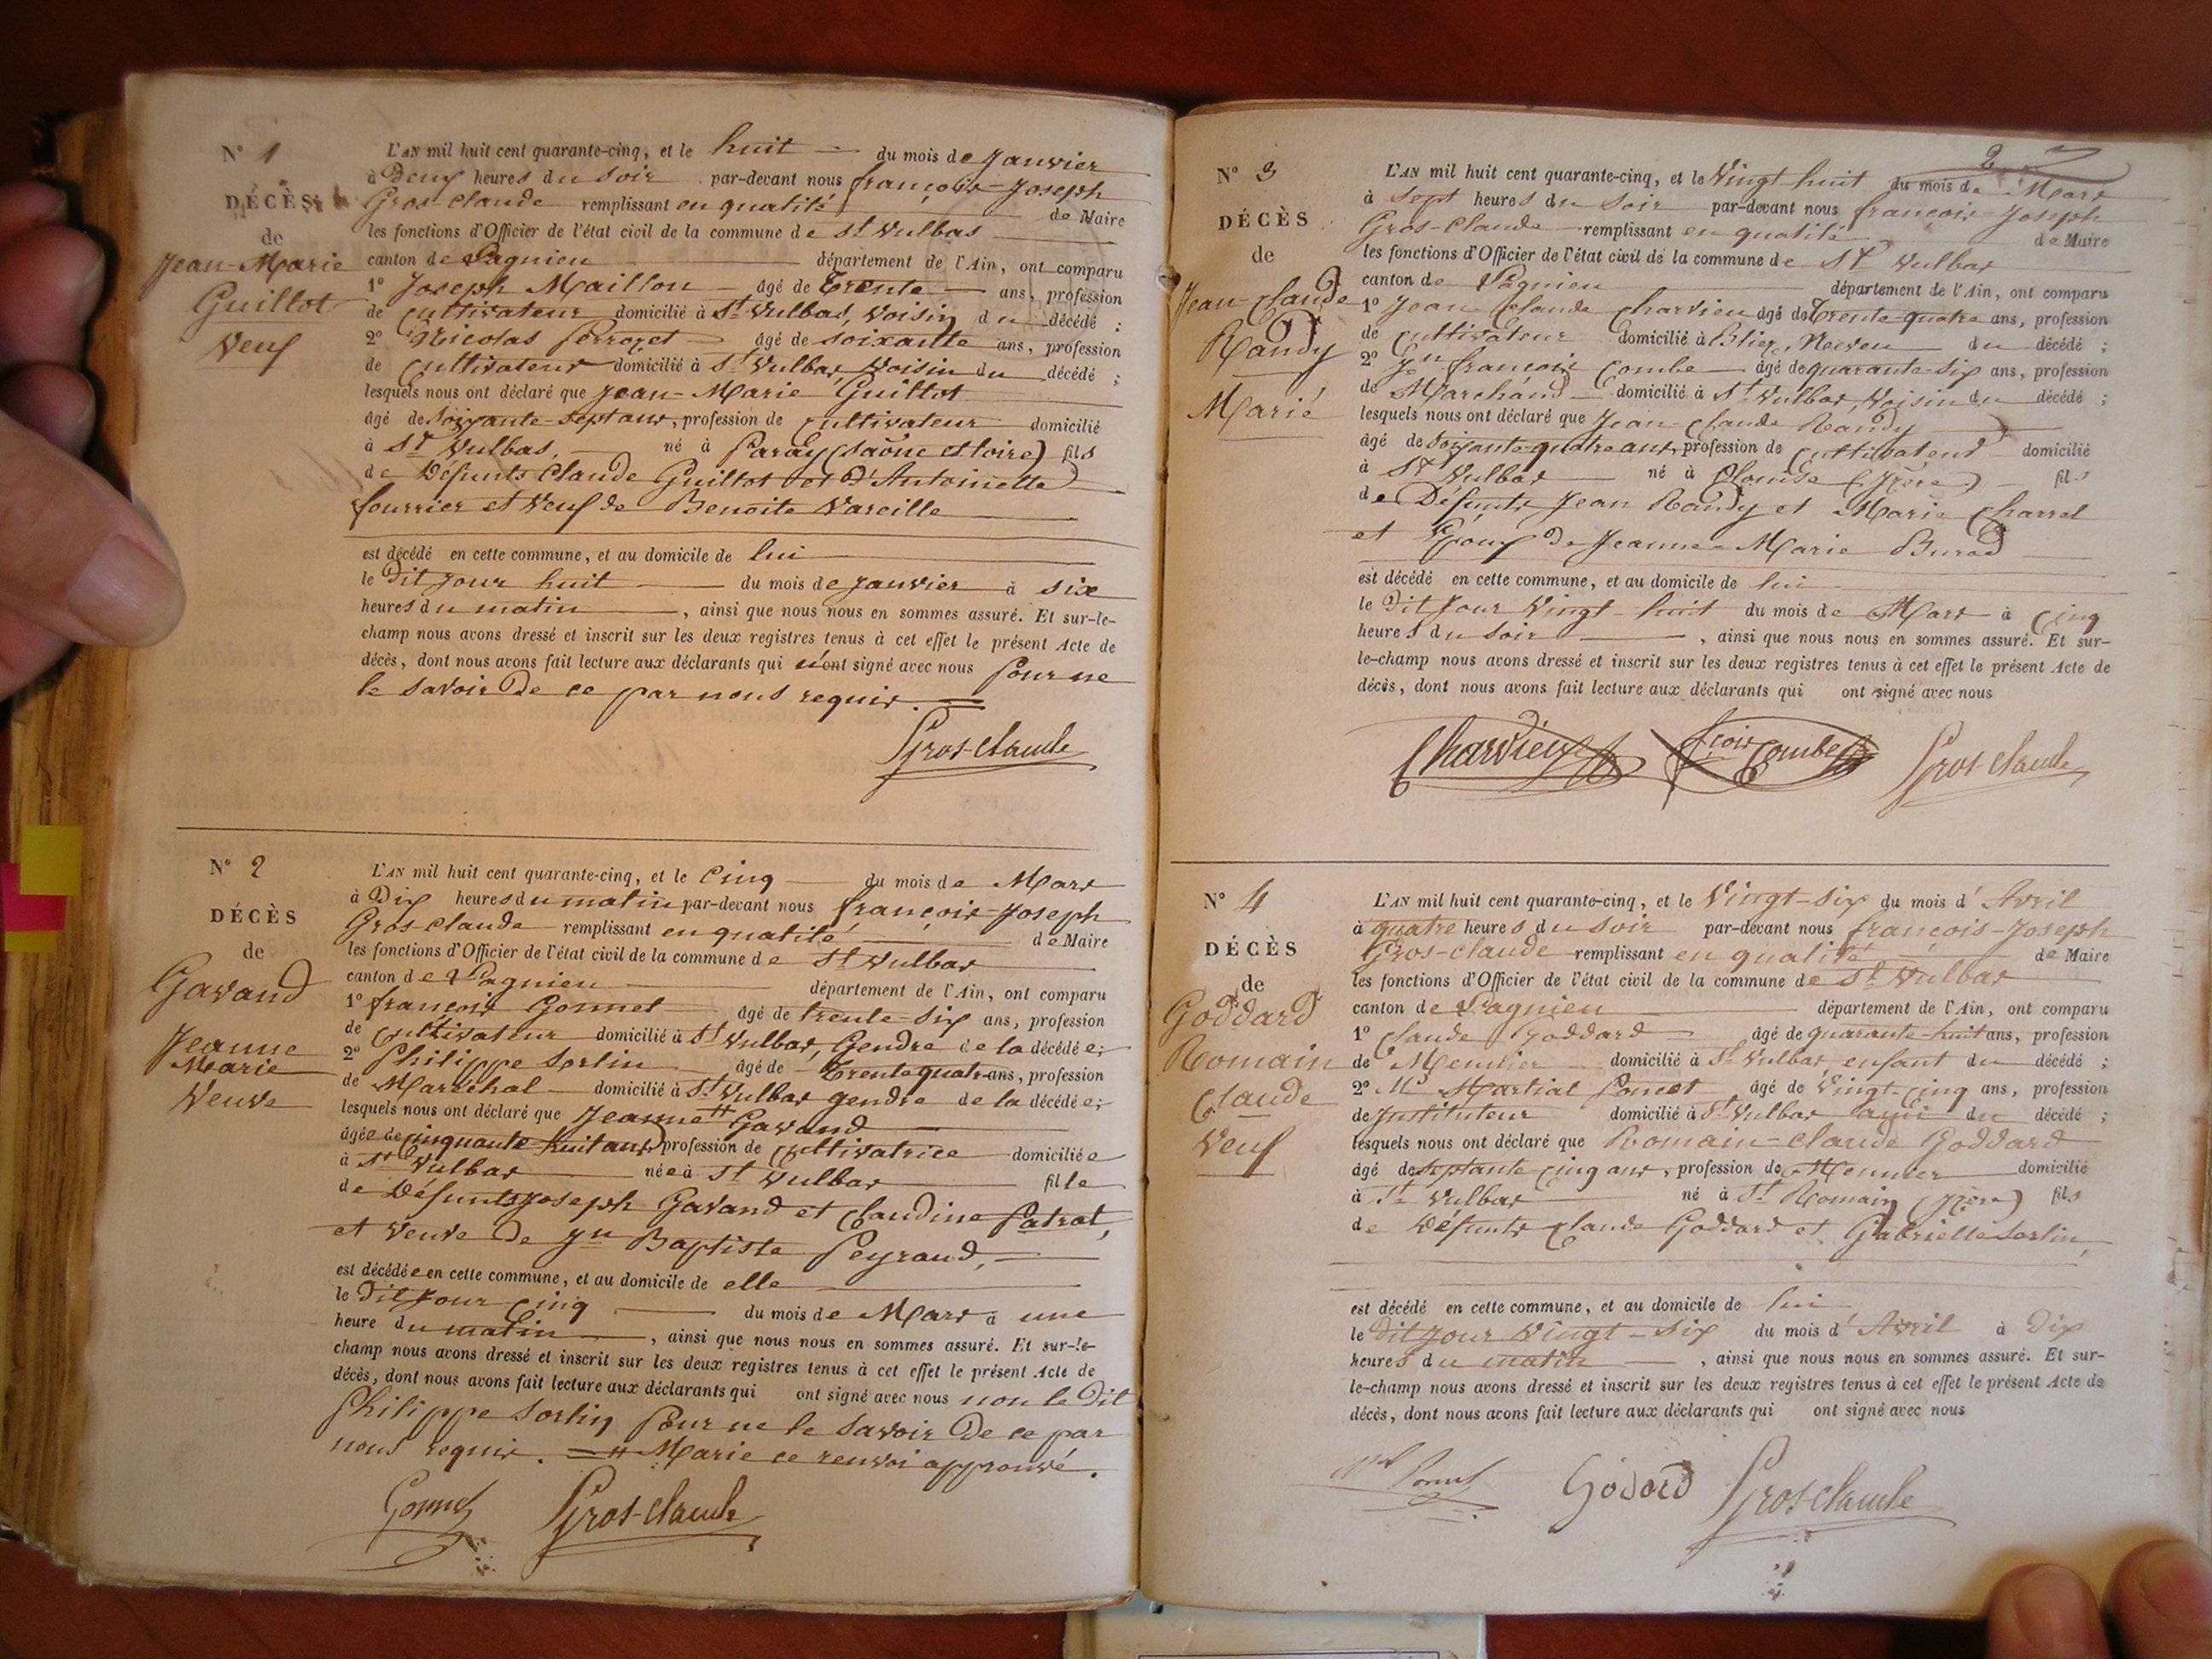 N° 1
DÉCÈS
de
Jean-Marie
Guillot
Veuf
L'AN mil huit cent quarante-cinq, et le huit du mois de Janvier
à Deux heures du soir par-devant nous françois-Joseph
Gros-claude remplissant en qualité de Maire
les fonctions d'Officier de l'état civil de la commune de St Vulbas
canton de Lagnieu département de l'Ain, ont comparu
1° Joseph Maillon âgé de Trente ans, profession
de Cultivateur domicilié à St Vulbas, Voisin du décédé ;
2° Nicolas Perrozet âgé de soixante ans, profession
de Cultivateur domicilié à St Vulbas, Voisin du décédé ;
lesquels nous ont déclaré que Jean-Marie Guillot
âgé de soixante-sept ans, profession de Cultivateur domicilié
à St Vulbas, né à Paray (Saône et loire) fils
de Défunts Claude Guillot et d'Antoinette
fourrier et Veuf de Benoite Vareille
est décédé en cette commune, et au domicile de lui
le Dit Jour huit du mois de Janvier à six
heures du matin , ainsi que nous nous en sommes assuré. Et sur-le-
champ nous avons dressé et inscrit sur les deux registres tenus à cet effet le présent Acte de
décès, dont nous avons fait lecture aux déclarants qui n'ont signé avec nous Pour ne
le savoir De ce par nous requis.
Gros-claude
N° 2
DÉCÈS
de
Gavand
Jeanne
Marie
Veuve
L'AN mil huit cent quarante-cinq, et le Cinq du mois de Mars
à Dix heures du matin par-devant nous françois-Joseph
Gros claude remplissant en qualité de Maire
les fonctions d'Officier de l'état civil de la commune de St Vulbas
canton de Lagnieu département de l'Ain, ont comparu
1° françois Gonnet âgé de trente-six ans, profession
de Cultivateur domicilié à St Vulbas, Gendre de la décédée ;
2° Philippe Sorlin âgé de Trente quatre ans, profession
de Maréchal domicilié à St Vulbas gendre de la décédée ;
lesquels nous ont déclaré que Jeanne # Gavand
âgée de cinquante-huit ans, profession de Cultivatrice domiciliée
à St Vulbas née à St Vulbas fille
de Défunts Joseph Gavand et Claudine Patrat,
et Veuve de Jn Baptiste Peyraud,
est décédée en cette commune, et au domicile de elle
le Dit Jour Cinq du mois de Mars à une
heure du matin , ainsi que nous nous en sommes assuré. Et sur-le-
champ nous avons dressé et inscrit sur les deux registres tenus à cet effet le présent Acte de
décès, dont nous avons fait lecture aux déclarants qui ont signé avec nous non le Dit
Philippe Sorlin Pour ne le savoir De ce par
nous requis. = # Marie ce renvoi approuvé.
Gonnet Gros-claude
2
N° 3
DÉCÈS
de
Jean-Claude
Randy
Marié
L'AN mil huit cent quarante-cinq, et le Vingt-huit du mois de Mars
à sept heures du soir par-devant nous françois-Joseph
Gros-claude remplissant en qualité de Maire
les fonctions d'Officier de l'état civil de la commune de St Vulbas
canton de Lagnieu département de l'Ain, ont comparu
1° Jean Claude Charvieu âgé de Trente-quatre ans, profession
de Cultivateur domicilié à Blies, Neveu du décédé ;
2° Jn françois Combe âgé de quarante-six ans, profession
de Marchand domicilié à St Vulbas, Voisin du décédé ;
lesquels nous ont déclaré que Jean-Claude Randy
âgé de soixante-quatre ans, profession de Cultivateur domicilié
à St Vulbas né à (Isère) fils
de Défunts Jean Randy et Marie Charrel
et Epoux De Jeanne-Marie Burod
est décédé en cette commune, et au domicile de lui
le Dit Jour Vingt-huit du mois de Mars à Cinq
heures du soir , ainsi que nous nous en sommes assuré. Et sur-
le-champ nous avons dressé et inscrit sur les deux registres tenus à cet effet le présent Acte de
décès, dont nous avons fait lecture aux déclarants qui ont signé avec nous
Charvieu fcois Combe Gros-claude
N° 4
DÉCÈS
de
Goddard
Romain
Claude
Veuf
L'AN mil huit cent quarante-cinq, et le Vingt-six du mois d'Avril
à quatre heures du soir par-devant nous françois-Joseph
Gros-claude remplissant en qualité de Maire
les fonctions d'Officier de l'état civil de la commune de St Vulbas
canton de Lagnieu département de l'Ain, ont comparu
1° Claude Goddard âgé de quarante-huit ans, profession
de Meunier domicilié à St Vulbas, enfant du décédé ;
2° Mr Martial Poncet âgé de Vingt-Cinq ans, profession
de Instituteur domicilié à St Vulbas ami du décédé ;
lesquels nous ont déclaré que Romain-Claude Goddard
âgé de septante cinq ans, profession de Meunier domicilié
à St Vulbas né à St Romain (Isère) fils
de Défunts Claude Goddard et Gabrielle Sorlin,
est décédé en cette commune, et au domicile de lui
le Dit Jour Vingt-six du mois d'Avril à Dix
heures du matin , ainsi que nous nous en sommes assuré. Et sur-
le-champ nous avons dressé et inscrit sur les deux registres tenus à cet effet le présent Acte de
décès, dont nous avons fait lecture aux déclarants qui ont signé avec nous
Poncet Godard Gros-claude